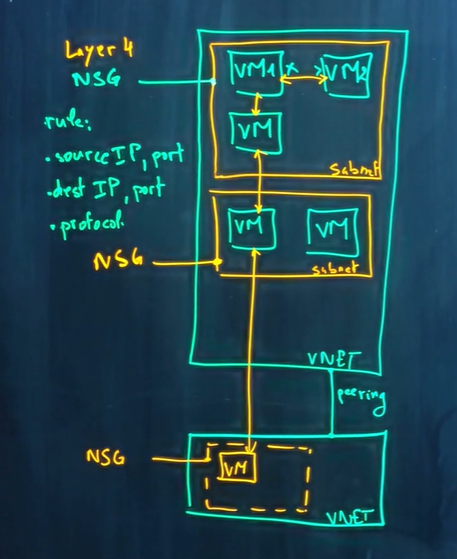 Layer 4
NSG
rule:
. source IP, port
. dest IP, port
. protocol
VM1 x VM2
VM
Subnet
VM VM
subnet
NSG
VNET
peering
NSG
VM
VNET